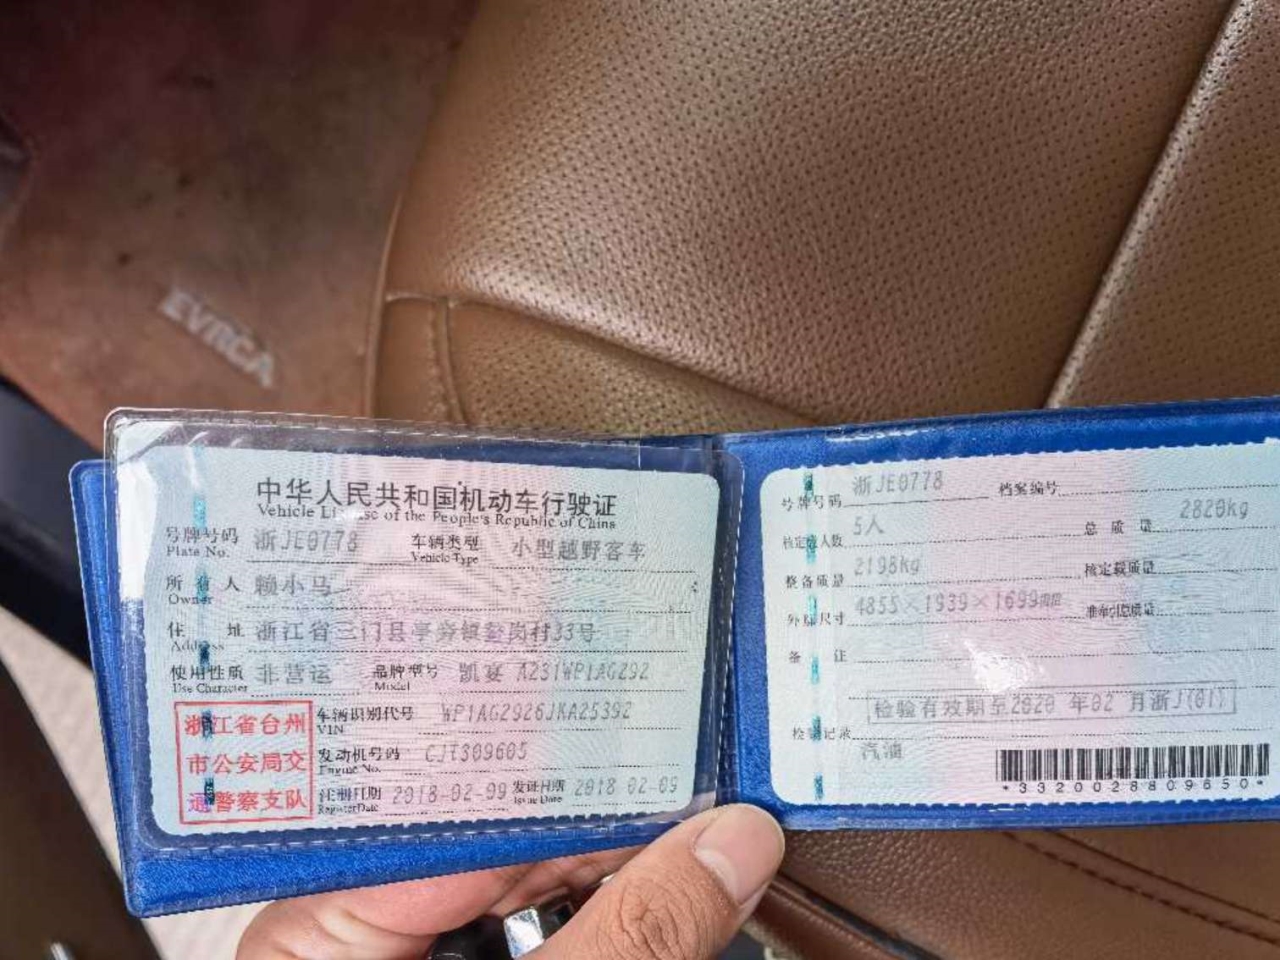 EVRCA
中华人民共和国机动车行驶证
Vehicle License of the People's Republic of China
号牌号码 浙JE0778 车辆类型 小型越野客车
Plate No. Vehicle Type
所有人 赖小马
Owner
住址 浙江省三门县亭旁镇 岗村33号
Address
使用性质 非营运 品牌型号 凯宴
Use Character Model
浙江省台州
市公安局交
通警察支队
车辆识别代号 WP1AG2926JKA25392
VIN
发动机号码 CJT309605
Engine No.
注册日期 2018-02-09 发证日期 2018-02-09
Register Date Issue Date
号牌号码 浙JE0778 档案编号
核定载人数 5人 总质量 2820kg
整备质量 2198kg 核定载质量
外廓尺寸 4855×1939×1699mm 准牵引总质量
备注
检验有效期至2020年02月浙J(01)
检验记录
汽油
*3320028809650*